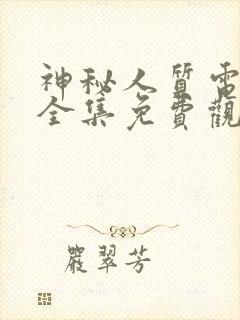 神秘人質電
全集免費觀
嚴翠芳